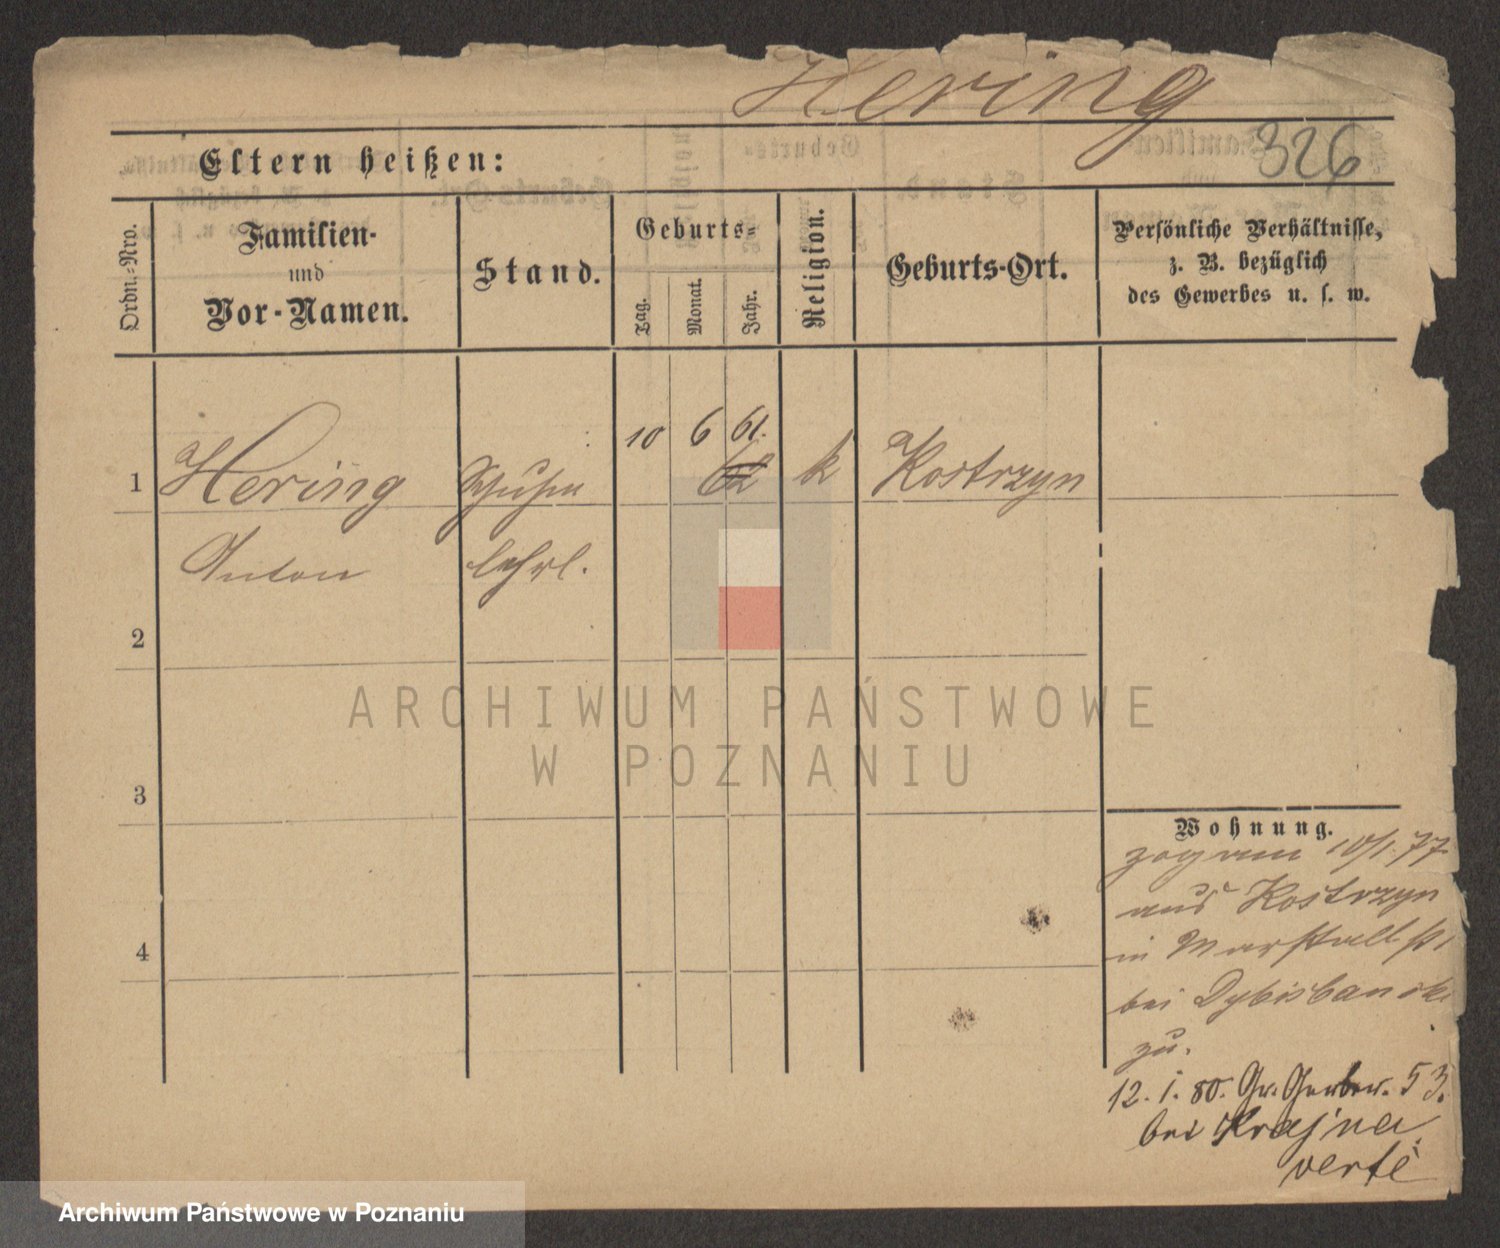 Hering
326
Eltern heißen:
Ordn.-Nro.
Familien-
und
Vor-Namen.
Stand.
Geburts-
Tag.
Monat.
Jahr.
Religion.
Geburts-Ort.
Persönliche Verhältnisse,
z. B. bezüglich
des Gewerbes u. s. w.
10 6 61.
1 Hering Schuhm 62 k Kostrzyn
Anton lehrl.
2
3
4
Wohnung.
zog am 10/1. 77
aus Kostrzyn
in Marstallst
bei Dybisbanski
zu.
12. 1. 80. Gr. Gerber. 53.
bei Krajna
verte
ARCHIWUM PAŃSTWOWE
W POZNANIU
Archiwum Państwowe w Poznaniu